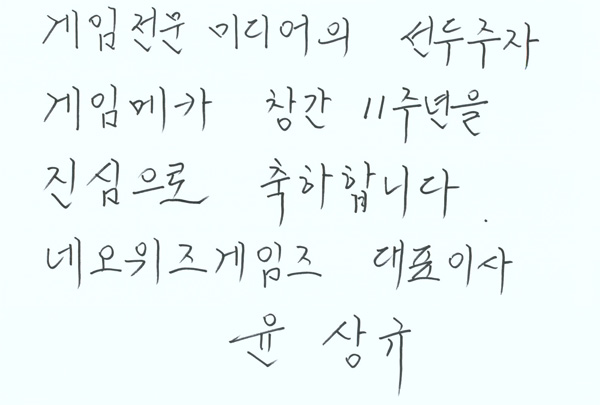 게임전문 미디어의 선두주자
게임메카 창간 11주년을
진심으로 축하합니다.
네오위즈게임즈 대표이사
윤 상 규